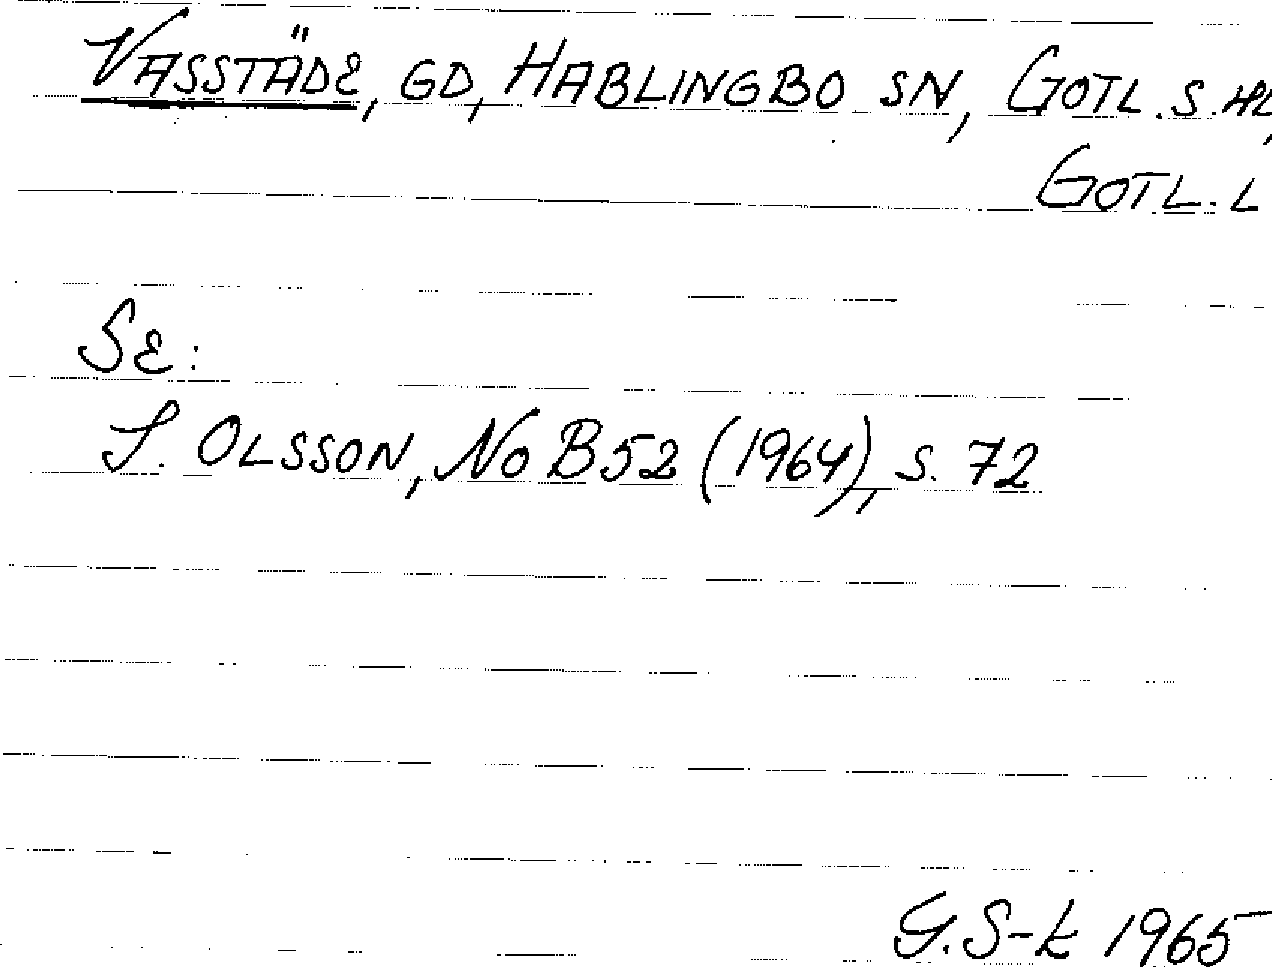 VASSTÄDE, GD, HABLINGBO SN, GOTL. S. HD,
GOTL. L
SE:
I. OLSSON, NoB 52 (1964), S. 72
G. S-k 1965